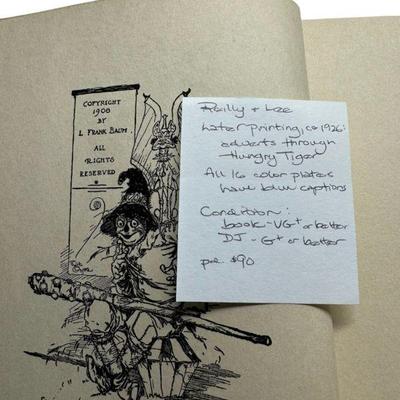 COPYRIGHT
1908
BY
L. FRANK BAUM.
ALL
RIGHTS
RESERVED
Reilly + Lee
Later printing, ca 1926:
adverts through
Hungry Tiger
All 16 color plates
have blue captions
Condition:
book - VG+ or better
DJ - G+ or better
pd. $90